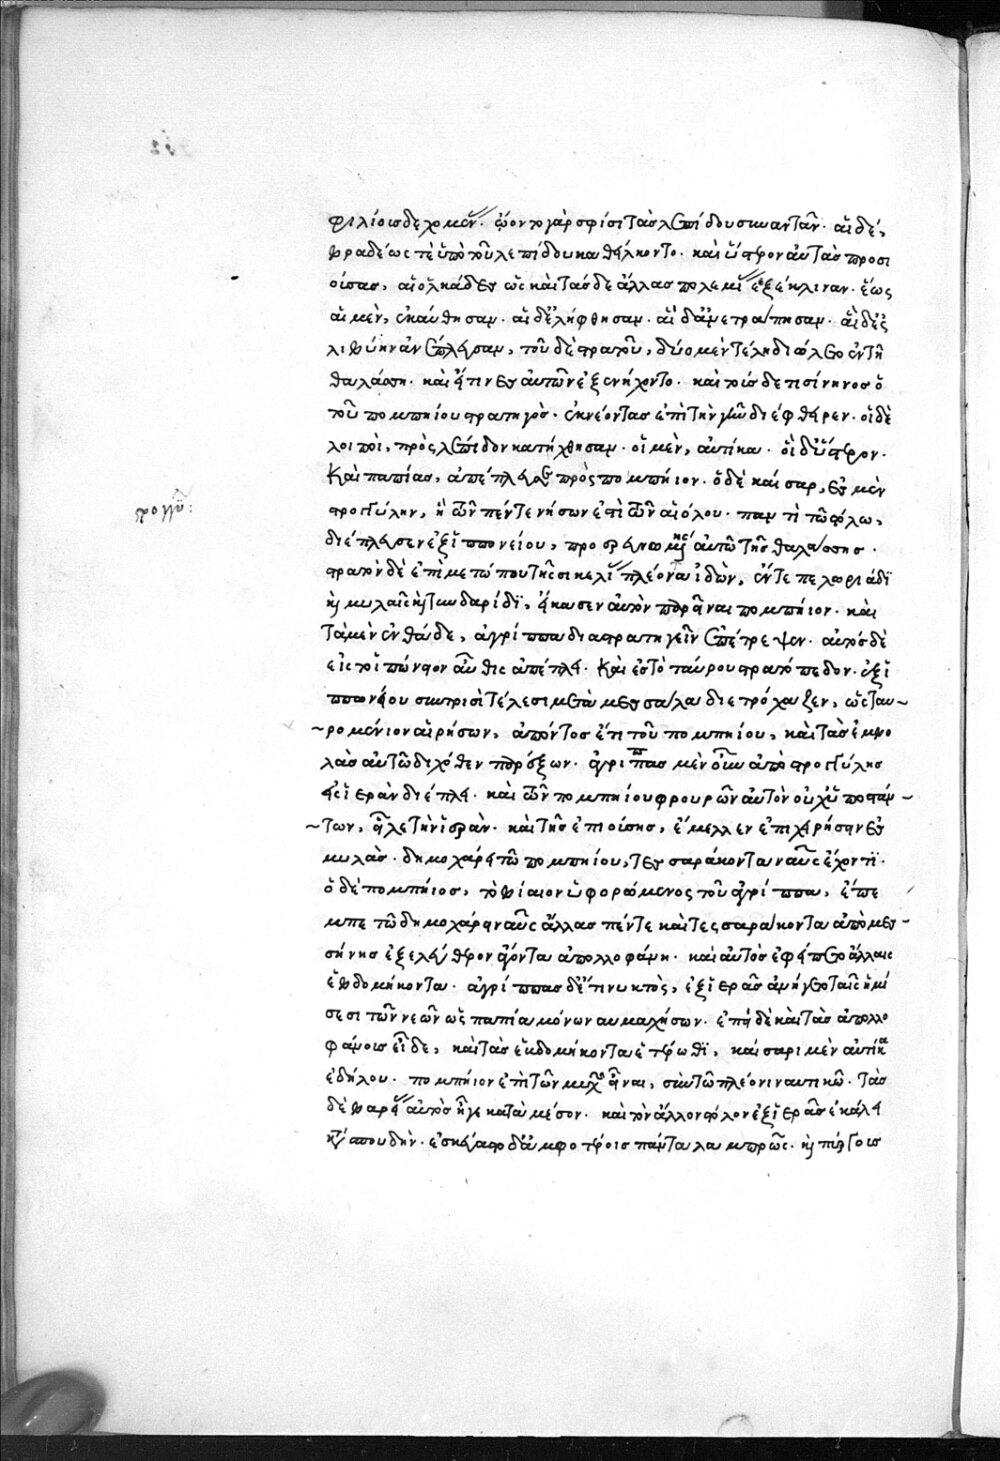 φιλίοις δεχομένων. ᾤοντο γὰρ σφίσι τὰς λεπίδου συναντᾶν. αἱ δέ,
βραδέως τὲ ὑπὸ τοῦ λεπίδου καθείλκοντο. καὶ ὕστερον αὐτὰς προσι
ούσας, αἱ ὁλκάδες ὡς καὶ τάσδε ἄλλας πολεμίας ἐξέκλιναν. ἕως
αἱ μὲν, ἐκαύθησαν. αἱ δὲ ἐλήφθησαν. αἱ δ' ἀνετράπησαν. αἱ δὲ ἐς
λιβύην ἀνέπλευσαν, τοῦ δὲ στρατοῦ, δύο μὲν τέλη διώλετο ἐν τῇ
θαλάσσῃ. καὶ εἴ τινες αὐτῶν ἐξενήχοντο. καὶ τούσδε τισίηνος ὁ
τοῦ πομπηίου στρατηγὸς. ἐκνέοντας ἐπὶ τὴν γῆν διέφθειρεν. οἱ δὲ
λοιποὶ, πρὸς λέπιδον κατήχθησαν. οἱ μὲν, αὐτίκα. οἱ δ' ὕστερον.
Καὶ παπίας, ἀπέπλευσε πρὸς πομπήιον. ὁ δὲ καίσαρ, ἐς μὲν
στρογγύλην, ἣ τῶν πέντε νήσων ἐστὶ τῶν αἰόλου. παντὶ τῷ στόλῳ,
διέπλευσεν ἐξ ἱππωνείου, προερευνωμένης αὐτῷ τῆς θαλάσσης.
στρατὸν δὲ ἐπὶ μετώπου τῆς σικελίας πλέονα ἰδὼν, ἔν τε πελωριάδι
καὶ μυλαῖς καὶ τυνδαρίδι, εἴκασεν αὐτὸν παρεῖναι πομπήιον. καὶ
τὰ μὲν ἐνθάδε, ἀγρίππα διαστρατηγεῖν ἐπέτρεψεν. αὐτὸς δὲ
εἰς τὸ ἱππώνειον αὖθις ἀπέπλει. Καὶ ἐς τὸ ταύρου στρατόπεδον. ἐξ ἱ
ππωνείου σὺν τρισὶ τέλεσι μετὰ μεσσάλα διετρόχαζεν, ὡς ταυ~
~ρομένιον αἱρήσων, ἀπόντος ἔτι τοῦ πομπηίου, καὶ τὰς ἐμβο
λὰς αὐτῷ διχόθεν παρέξων. ἀγρίππας μὲν οὖν ἀπὸ στρογγύλης
εἰς ἱερὰν διέπλει. καὶ τῶν πομπηίου φρουρῶν αὐτὸν οὐχ ὑποστάν~
~των, εἷλε τὴν ἱερὰν. καὶ τῆς ἐπιούσης, ἔμελλεν ἐπιχειρήσειν ἐς
μυλὰς. δημοχάρει τῷ πομπηίου, τεσσαράκοντα ναῦς ἔχοντι.
ὁ δὲ πομπήιος, τὸ βίαιον ὑφορώμενος τοῦ ἀγρίππα, ἔπε
μπε τῷ δημοχάρει ναῦς ἄλλας πέντε καὶ τεσσαράκοντα ἀπὸ μεσ~
σήνης ἐξελεύθερον ἄγοντα ἀπολλοφάνη. καὶ αὐτὸς ἐφείπετο ἄλλαις
ἑβδομήκοντα. ἀγρίππας δ' ἔτι νυκτὸς, ἐξ ἱερᾶς ἀνήγετο ταῖς ἡμί
σεσι τῶν νεῶν ὡς παπία μόνῳ ναυμαχήσων. ἐπεὶ δὲ καὶ τὰς ἀπολλο
φάνους εἶδε, καὶ τὰς ἑβδομήκοντα ἑτέρωθι, καίσαρι μὲν αὐτίκα
ἐδήλου. πομπήιον ἐπὶ τῶν μυλῶν εἶναι, σὺν τῷ πλέονι ναυτικῷ. τὰς
δὲ βαρείας αὐτὸς ἦγε κατὰ μέσον. καὶ τὸν ἄλλον στόλον ἐξ ἱερᾶς ἐκάλει
κατὰ σπουδὴν. ἐσκεύαστο δ' ἀμφοτέροις πάντα λαμπρῶς. καὶ πύργους